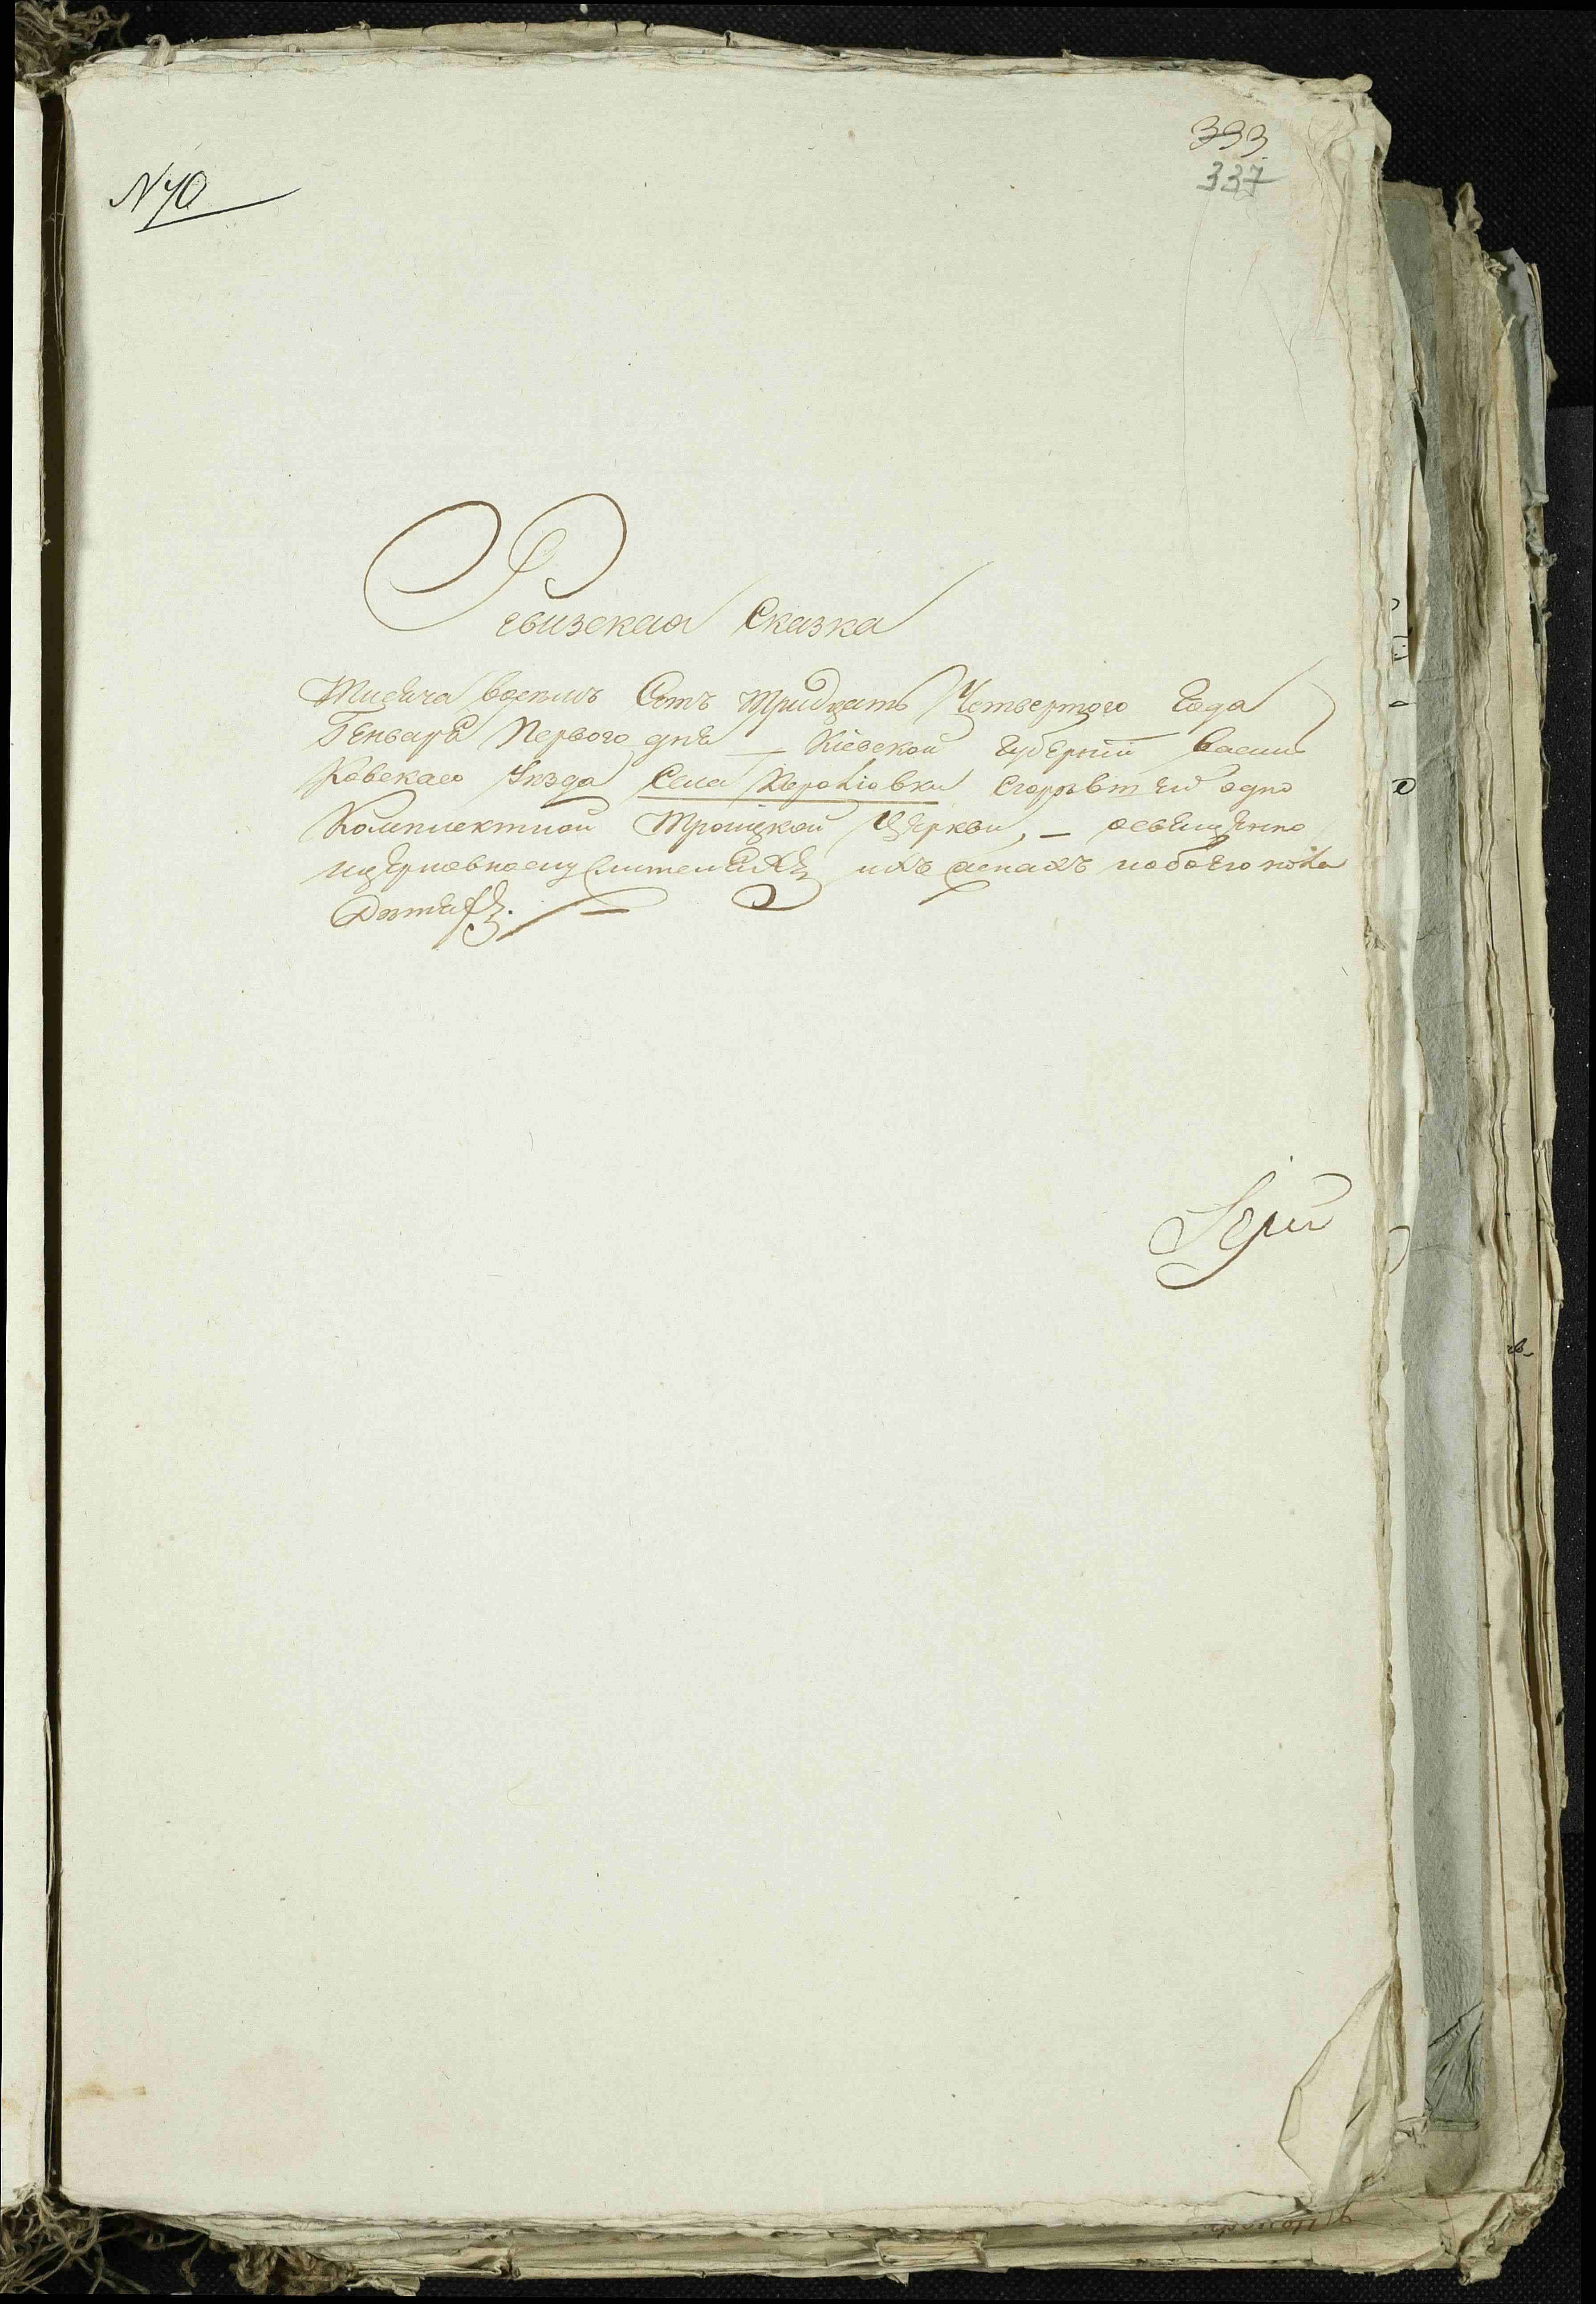 N 70
393
337
Ревизская Сказка
Тисеча восемь Сотъ тридцать Четвертого Года
Генваря Первого дня — Кіевской Губерніи Васил
Ковскаго Уезда Села сгоревшей одно
Комплектной Троицкой Церкви, — освещенно
ицерковнослужителяхъ ихъ женахъ иобоего пола
Детяхъ.